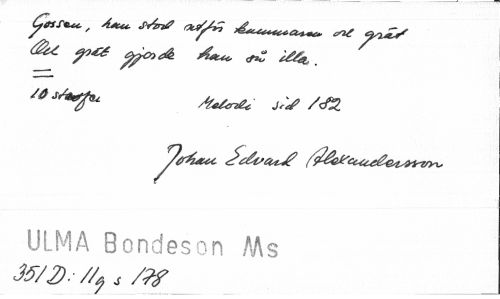 Gossen, han stod utför kammaren och grät
Och grät gjorde han så illa.
10 strofer
Melodi sid 182
Johan Edvard Alexandersson
ULMA Bondeson Ms
351 D: 11g s 178